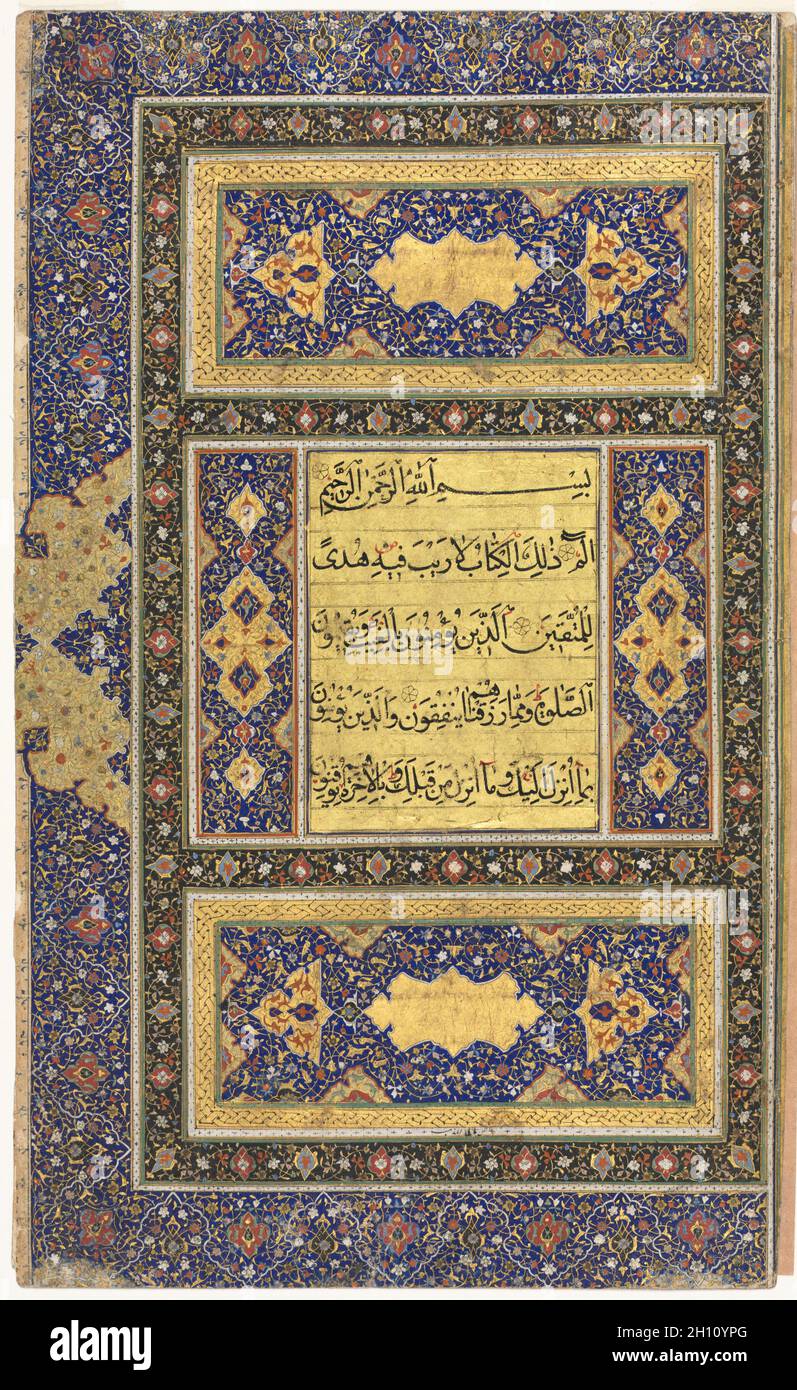 بِسْمِ اللَّهِ الرَّحْمَٰنِ الرَّحِيمِ
الم ذَٰلِكَ الْكِتَابُ لَا رَيْبَ فِيهِ هُدًى
لِلْمُتَّقِينَ الَّذِينَ يُؤْمِنُونَ بِالْغَيْبِ وَيُقِيمُونَ
الصَّلَوٰةَ وَمِمَّا رَزَقْنَاهُمْ يُنْفِقُونَ وَالَّذِينَ يُؤْمِنُونَ
بِمَا أُنْزِلَ إِلَيْكَ وَمَا أُنْزِلَ مِنْ قَبْلِكَ وَبِالْآخِرَةِ هُمْ يُوقِنُونَ
alamy
Image ID: 2H10YPG
www.alamy.com